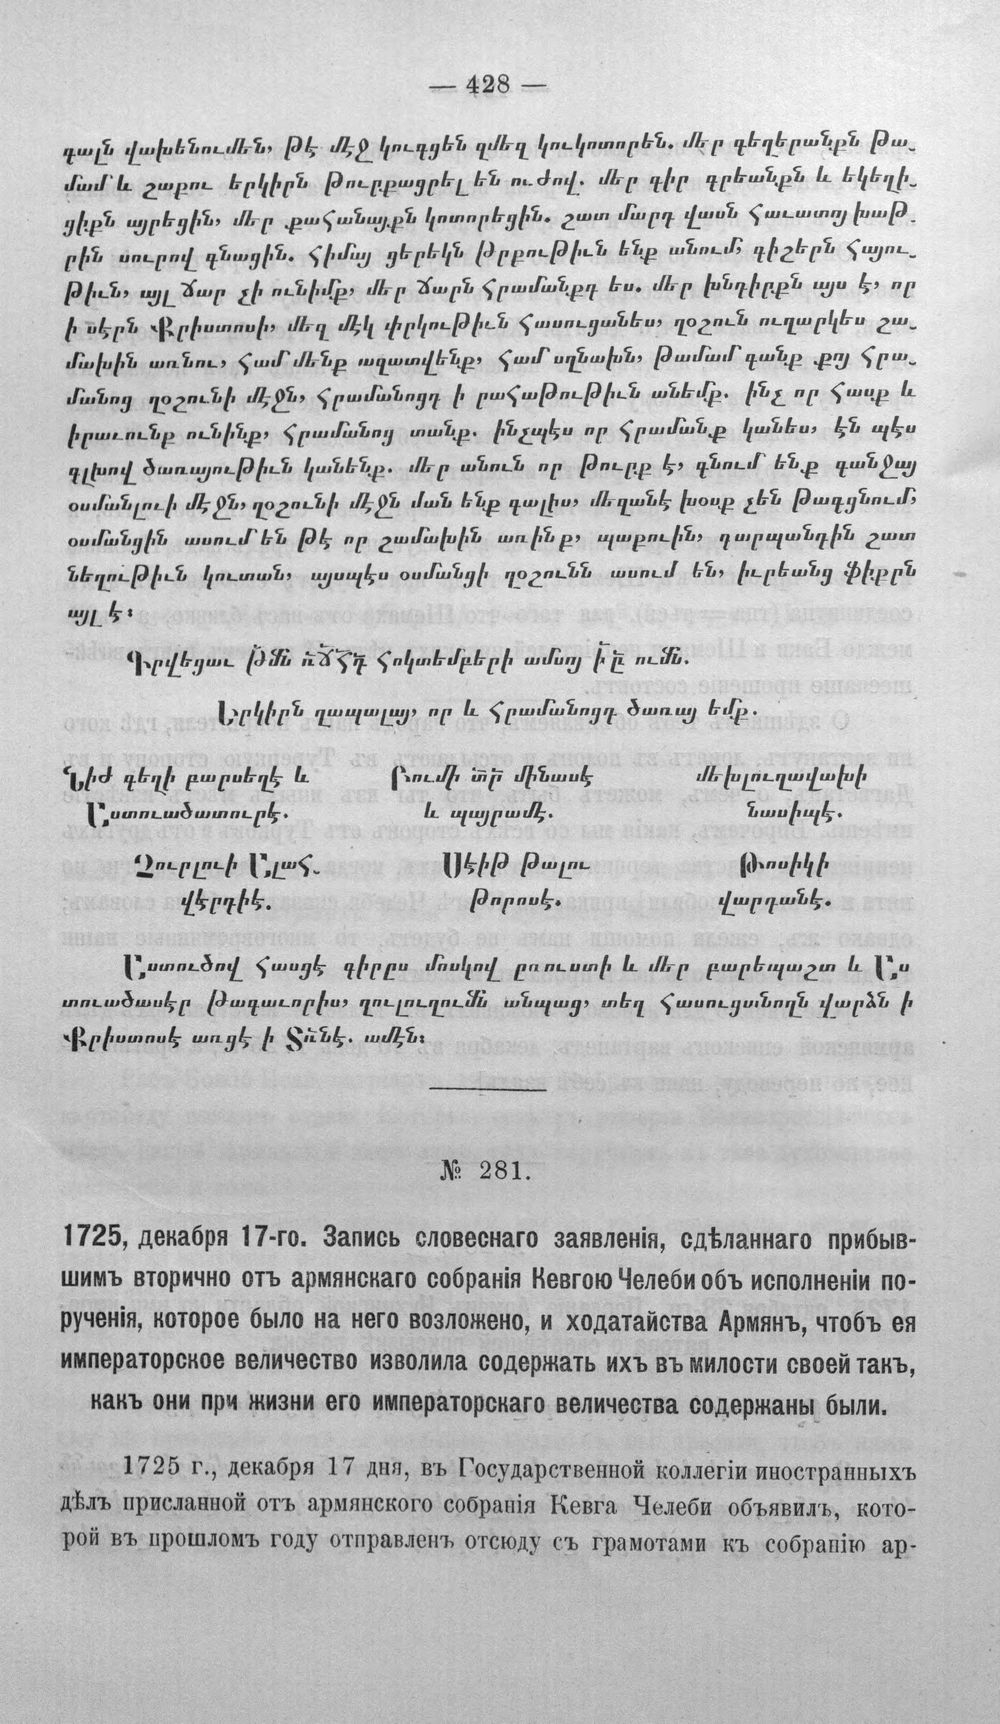 — 428 —
գալն վախենումեն, թէ մէջ կուգցեն զմեզ կուկոտորեն. մեր գեղերանքն թա-
մամ և շաքու երկիրն թուրքացրել են ուժով. մեր գիր գրեանքն և եկեղի-
ցիքն այրեցին, մեր քահանայքն կոտորեցին. շատ մարդ վասն հաւատոյ խաթ-
րին սուրով գնացին. հիմայ ցերեկն թրքութիւն ենք անում, գիշերն հայու-
թիւն, այլ ճար չի ունիմք, մեր ճարն հրամանքդ ես. մեր խնդիրքն այս է, որ
ի սէրն Քրիստոսի, մեզ մէկ փրկութիւն հասուցանես, ղօշուն ուղարկես շա-
մախին առնու, համ մենք ազատվենք, համ սղնախն, թամամ գանք քոյ հրա-
մանոց ղօշունի մէջն, հրամանոցդ ի րահաթութիւն անեմք. ինչ որ հասք և
իրաւունք ունինք, հրամանոց տանք. ինչպէս որ հրամանք կանես, էն պէս
գլխով ծառայութիւն կանենք. մեր անուն որ թուրք է, գնում ենք գանջայ
օսմանլուի մէջն, ղօշունի մէջն ման ենք գալիս, մեզանէ խօսք չեն թագցնում,
օսմանցին ասում են թէ որ շամախին առինք, պաքուին, դարպանդին շատ
նեղութիւն կուտան, այսպէս օսմանցի ղօշունն ասում են, իւրեանց ֆիքրն
այլ է։
Գրվեցաւ թՃն ռՃՀդ հոկտեմբերի ամնոյ ի ը ումն.
Երկիրն ղապալայ, որ և հրամանոցդ ծառայ եմք.
Նիժ գեղի բարսեղէ և
Րումի տր մինասէ
մեխլուղավախի
Աստուածատուրէ.
և պայրամէ.
նասիպէ.
Չուրլուի Ալահ-
Սէիթ թալու
Թոսիկի
վէրդիէ.
թորոսէ.
վարդանէ.
Աստուծով հասցէ գիրըս մոսկով ըռուստի և մեր բարեպաշտ և Աս
տուածասէր թագաւորիս, ղուլուղումն անպաց, տեղ հասուցանողն վարձն ի
Քրիստոսէ առցէ ի Տնէ. ամէն։
№ 281.
1725, декабря 17-го. Запись словеснаго заявленія, сдѣланнаго прибыв-
шимъ вторично отъ армянскаго собранія Кевгою Челеби объ исполненіи по-
рученія, которое было на него возложено, и ходатайства Армянъ, чтобъ ея
императорское величество изволила содержать ихъ въ милости своей такъ,
какъ они при жизни его императорскаго величества содержаны были.
1725 г., декабря 17 дня, въ Государственной коллегіи иностранныхъ
дѣлъ присланной отъ армянского собранія Кевга Челеби объявилъ, кото-
рой въ прошломъ году отправленъ отсюду съ грамотами къ собранію ар-